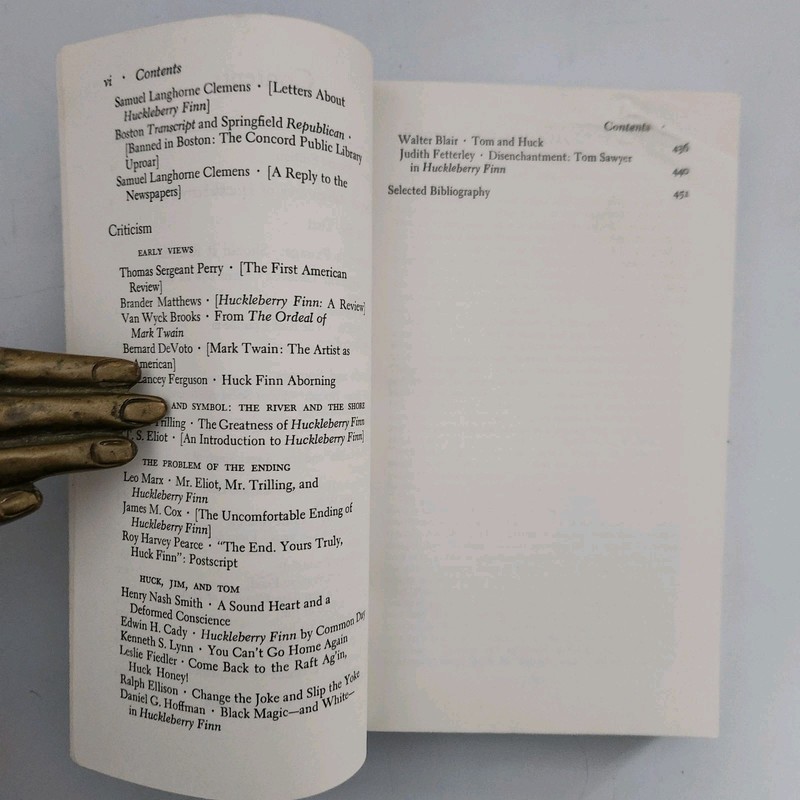 vi · Contents
Samuel Langhorne Clemens · [Letters About
Huckleberry Finn]
Boston Transcript and Springfield Republican ·
[Banned in Boston: The Concord Public Library
Uproar]
Samuel Langhorne Clemens · [A Reply to the
Newspapers]
Criticism
EARLY VIEWS
Thomas Sergeant Perry · [The First American
Review]
Brander Matthews · [Huckleberry Finn: A Review]
Van Wyck Brooks · From The Ordeal of
Mark Twain
Bernard DeVoto · [Mark Twain: The Artist as
American]
Ferguson · Huck Finn Aborning
AND SYMBOL: THE RIVER AND THE SHORE
· The Greatness of Huckleberry Finn
S. Eliot · [An Introduction to Huckleberry Finn]
THE PROBLEM OF THE ENDING
Leo Marx · Mr. Eliot, Mr. Trilling, and
Huckleberry Finn
James M. Cox · [The Uncomfortable Ending of
Huckleberry Finn]
Roy Harvey Pearce · "The End. Yours Truly,
Huck Finn": Postscript
HUCK, JIM, AND TOM
Henry Nash Smith · A Sound Heart and a
Deformed Conscience
Edwin H. Cady · Huckleberry Finn by Common Day
Kenneth S. Lynn · You Can't Go Home Again
Leslie Fiedler · Come Back to the Raft Ag'in,
Huck Honey!
Ralph Ellison · Change the Joke and Slip the Yoke
Daniel G. Hoffman · Black Magic—and White—
in Huckleberry Finn
Contents ·
Walter Blair · Tom and Huck 436
Judith Fetterley · Disenchantment: Tom Sawyer
in Huckleberry Finn 440
Selected Bibliography 451